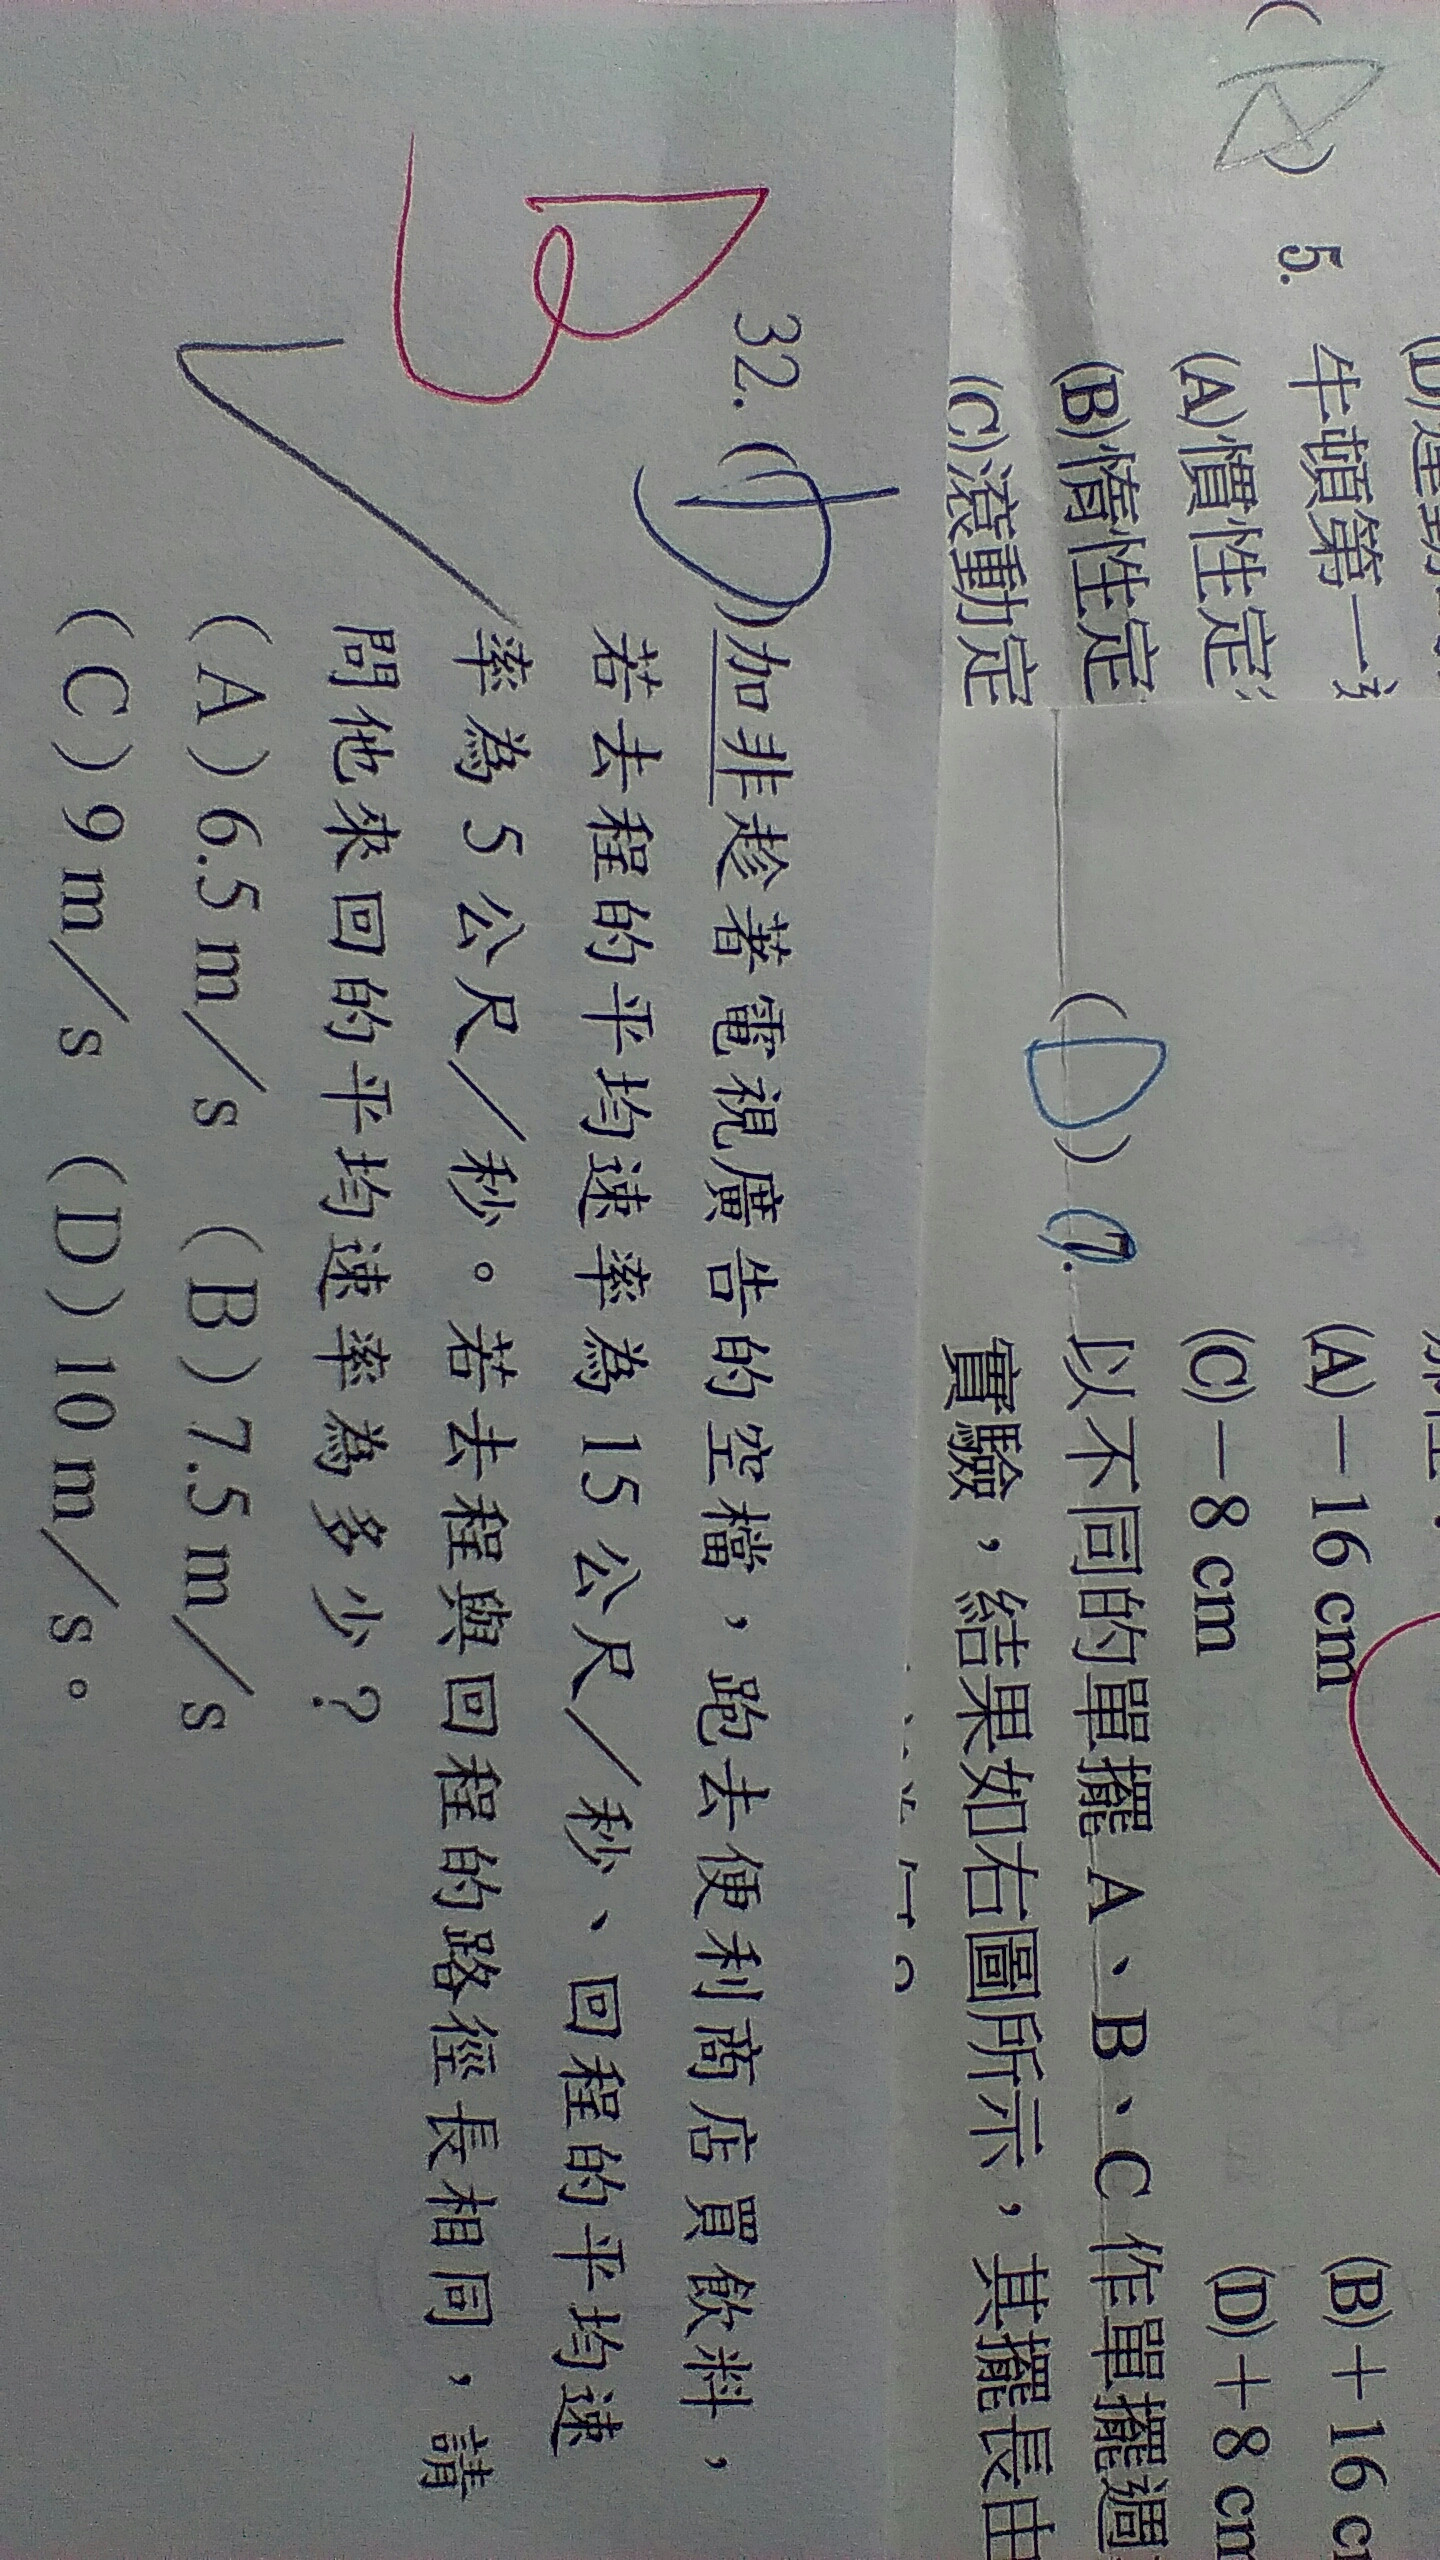 (D)運動
5. 牛頓第一
(A)慣性定
(B)惰性定
(C)滾動定
(A)－16 cm
(B)＋16 c
(C)－8 cm
(D)＋8 cm
(D) 7. 以不同的單擺 A、B、C 作單擺週
實驗，結果如右圖所示，其擺長由
32. ( )加菲趁著電視廣告的空檔，跑去便利商店買飲料，
若去程的平均速率為 15 公尺／秒、回程的平均速
率為 5 公尺／秒。若去程與回程的路徑長相同，請
問他來回的平均速率為多少？
(A) 6.5 m／s (B) 7.5 m／s
(C) 9 m／s (D) 10 m／s。
B